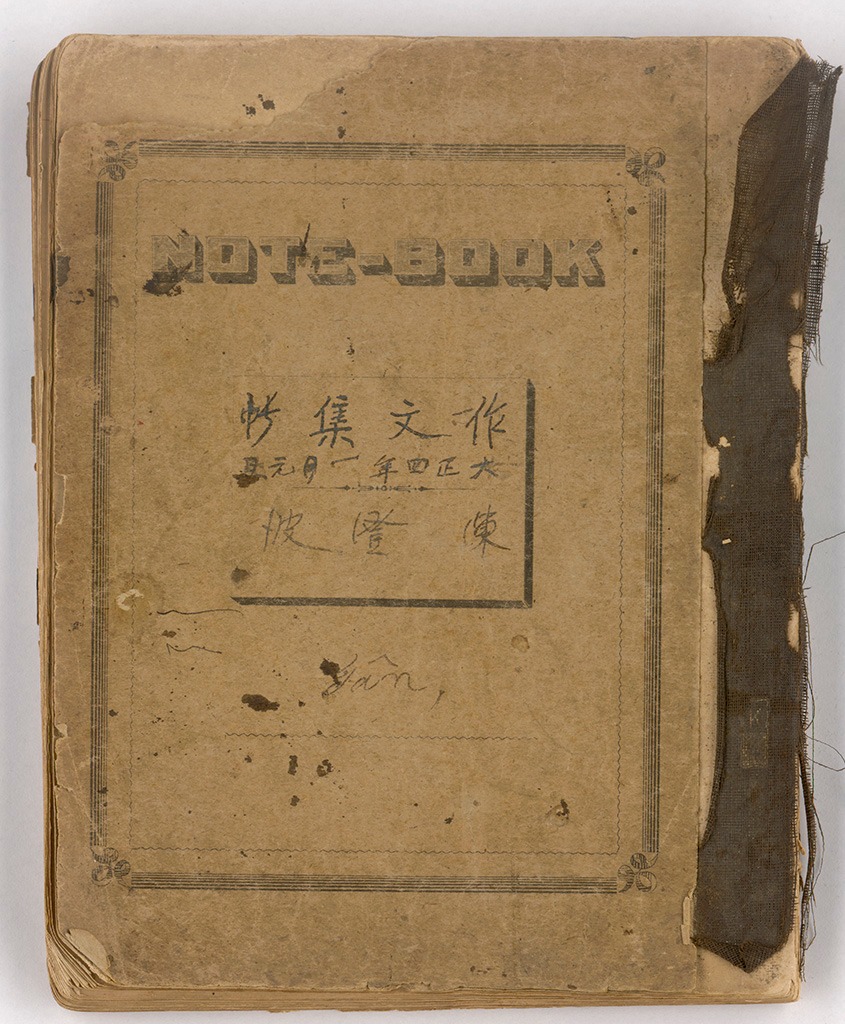 NOTE-BOOK
作文集帖
大正四年一月元旦
陳澄波
Tân,